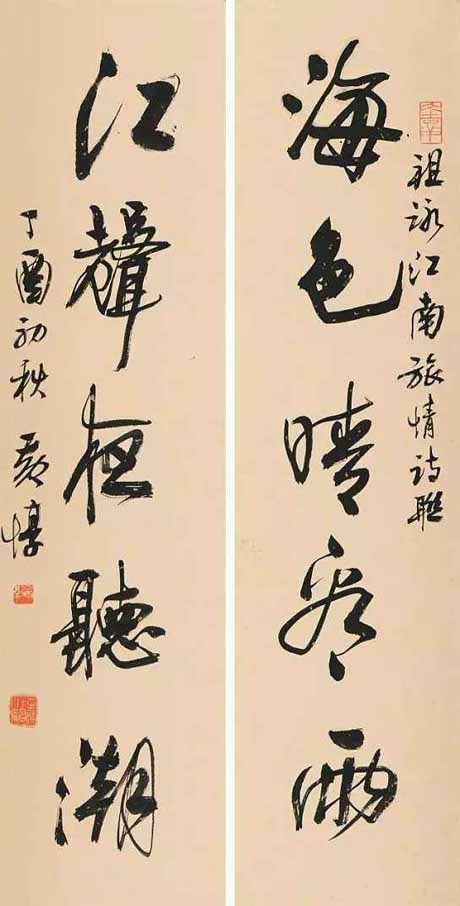 祖詠江南旅情詩聯
海色晴看雨
江聲夜聽潮
丁酉初秋 黃惇